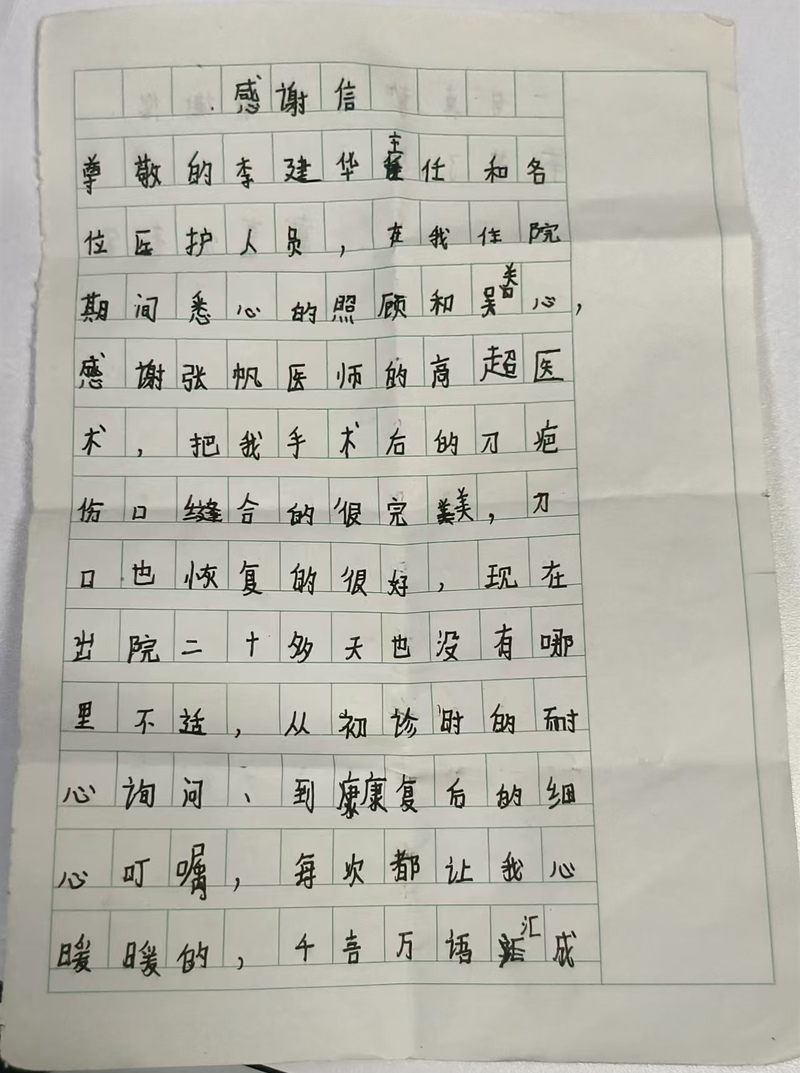 感谢信
尊敬的李建华主任和各
位医护人员，在我住院
期间悉心的照顾和善心，
感谢张帆医师的高超医
术，把我手术后的刀疤
伤口缝合的很完美，刀
口也恢复的很好，现在
出院二十多天也没有哪
里不适，从初诊时的耐
心询问、到康复后的细
心叮嘱，每次都让我心
暖暖的，千言万语汇成